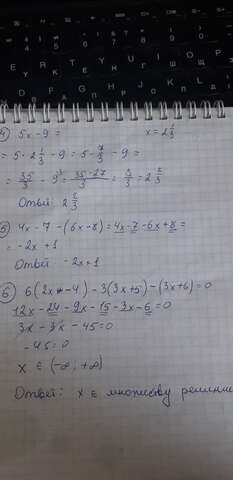 4) 5x - 9 =      x = 2 1/3
= 5 · 2 1/3 - 9 = 5 · 7/3 - 9 =
= 35/3 - 9³ = (35 - 27)/3 = 8/3 = 2 2/3
Ответ: 2 2/3
5) 4x - 7 - (6x - 8) = 4x - 7 - 6x + 8 =
= -2x + 1
Ответ: -2x + 1
6) 6(2x - 4) - 3(3x + 5) - (3x + 6) = 0
12x - 24 - 9x - 15 - 3x - 6 = 0
3x - 3x - 45 = 0
-45 = 0
x ∈ (-∞, +∞)
Ответ: x ∈ множеству